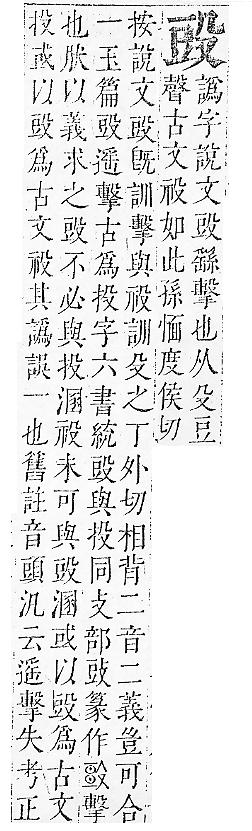 毭
譌字說文毭繇擊也从殳豆
聲古文祋如此孫愐度侯切
按說文毭旣訓擊與祋訓殳之丁外切相背二音二義豈可合
一玉篇毭遥擊古爲投字六書統毭與投同攴部篆作擊
也肰以義求之毭不必與投溷祋未可與毭溷或以毭爲古文
投或以毭爲古文祋其譌誤一也舊註音頭汎云遥擊失考正